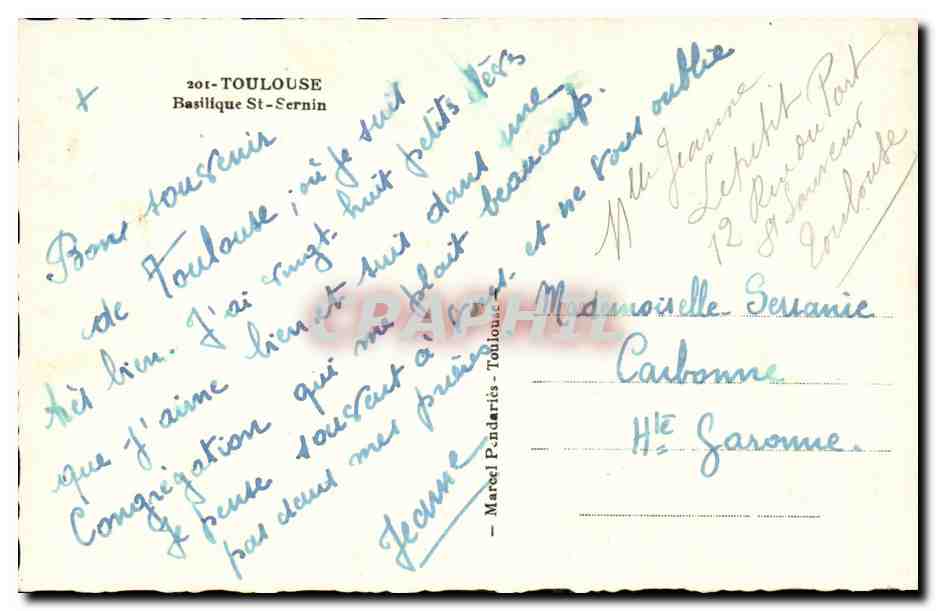 201-TOULOUSE
Basilique St-Sernin
+
Bons souvenir
de Toulouse, où je suit
très bien. J'ai vingt-huit petits élèves
que j'aime bien et suit dans une
Congrégation qui me plait beaucoup.
Je pense souvent à vous et ne vous oublie
pas dans mes prières
Jeanne
Mlle Jeanne
Lepetit
12 Rue du Port
St Sauveur
Toulouse
— Marcel Pendariès - Toulouse —
Mademoiselle Serranie
Carbonne
Hte Garonne.
CPAPHIL